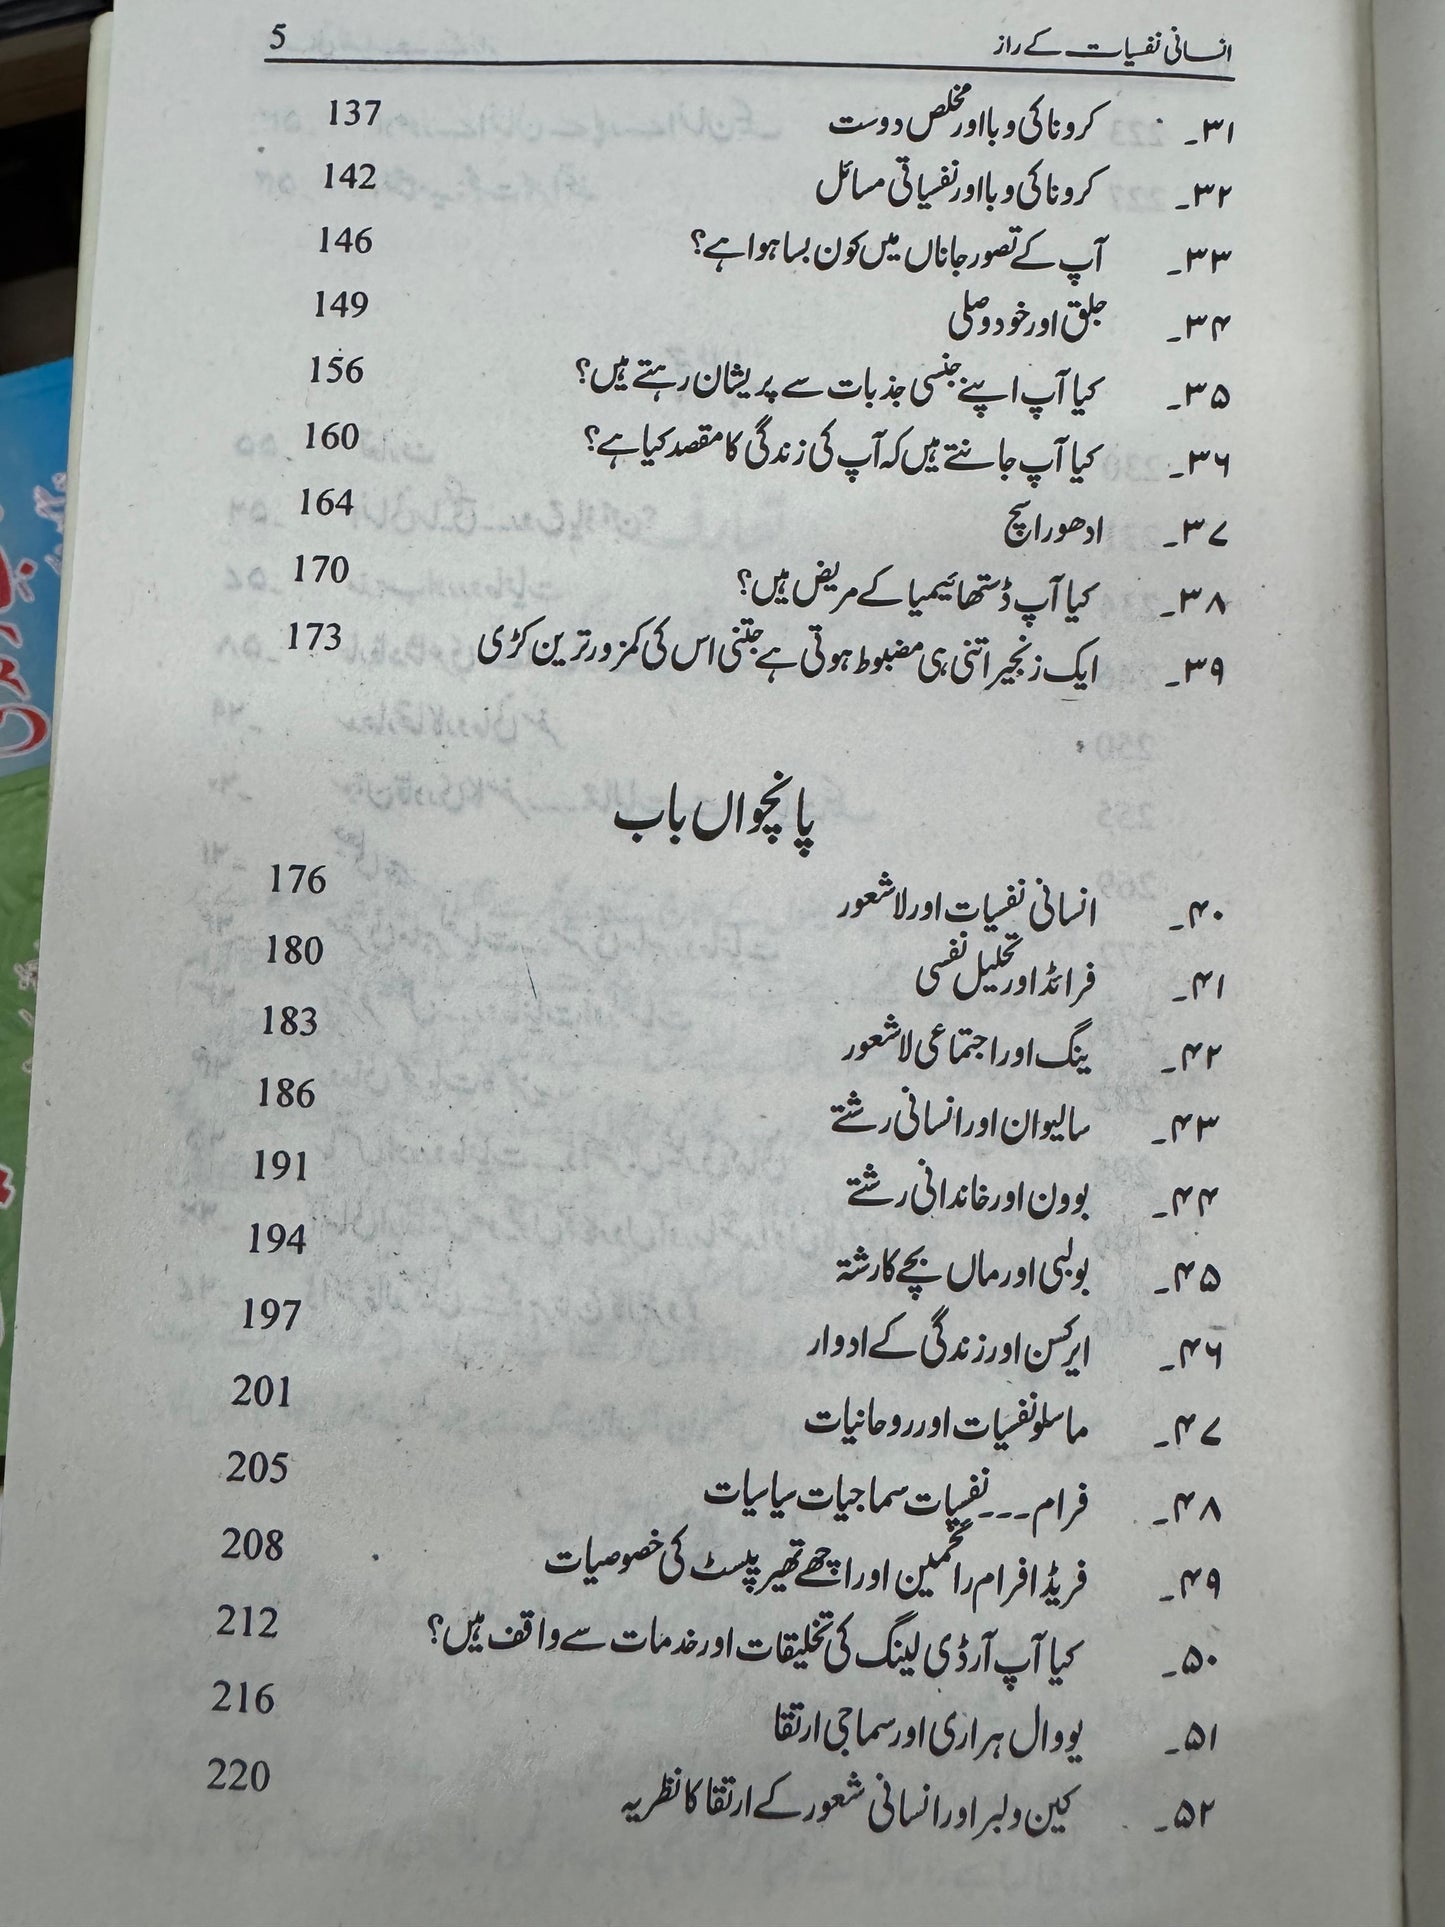 انسانی نفسیات کے راز 5
۳۱۔ کرونا کی وبا اور مخلص دوست 137
۳۲۔ کرونا کی وبا اور نفسیاتی مسائل 142
۳۳۔ آپ کے تصور جاناں میں کون بسا ہوا ہے؟ 146
۳۴۔ جلق اور خود وصلی 149
۳۵۔ کیا آپ اپنے جنسی جذبات سے پریشان رہتے ہیں؟ 156
۳۶۔ کیا آپ جانتے ہیں کہ آپ کی زندگی کا مقصد کیا ہے؟ 160
۳۷۔ ادھورا سچ 164
۳۸۔ کیا آپ ڈستھائیمیا کے مریض ہیں؟ 170
۳۹۔ ایک زنجیر اتنی ہی مضبوط ہوتی ہے جتنی اس کی کمزور ترین کڑی 173
پانچواں باب
۴۰۔ انسانی نفسیات اور لاشعور 176
۴۱۔ فرائڈ اور تحلیل نفسی 180
۴۲۔ ینگ اور اجتماعی لاشعور 183
۴۳۔ سالیوان اور انسانی رشتے 186
۴۴۔ بوون اور خاندانی رشتے 191
۴۵۔ بولبی اور ماں بچے کا رشتہ 194
۴۶۔ ایرکسن اور زندگی کے ادوار 197
۴۷۔ ماسلو نفسیات اور روحانیات 201
۴۸۔ فرام۔۔۔نفسیات سماجیات سیاسیات 205
۴۹۔ فریڈا فرام رائخمین اور اچھے تھیرپیسٹ کی خصوصیات 208
۵۰۔ کیا آپ آر ڈی لینگ کی تخلیقات اور خدمات سے واقف ہیں؟ 212
۵۱۔ یووال ہراری اور سماجی ارتقا 216
۵۲۔ کین ولبر اور انسانی شعور کے ارتقا کا نظریہ 220